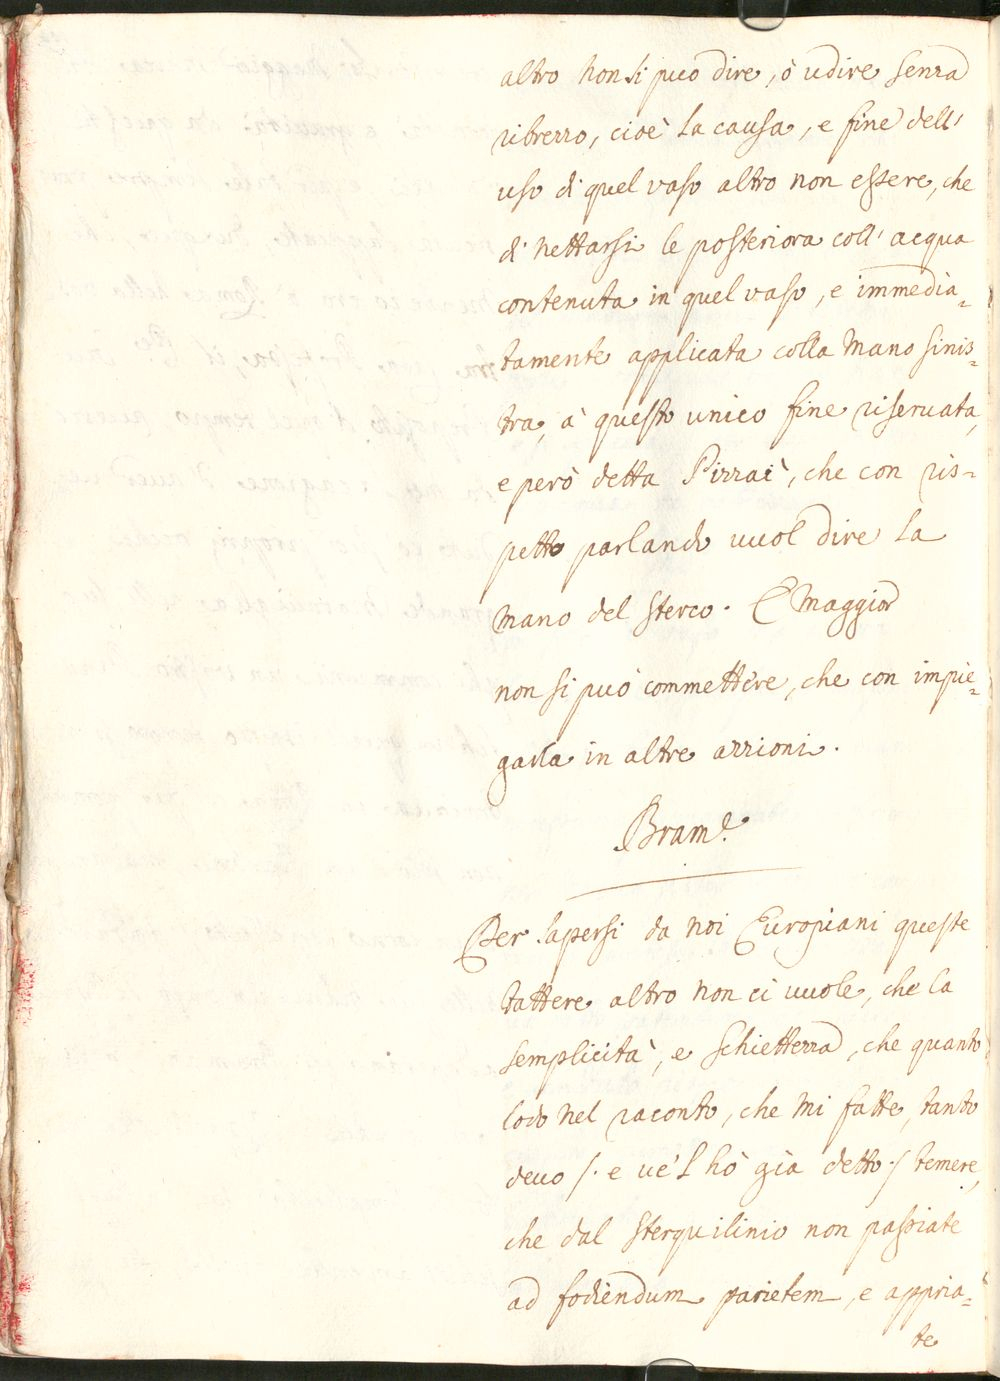 altro non si puo dire, ò udire senza
ribrezzo, cioè la causa, e fine dell'
uso di quel vaso altro non essere, che
di nettarsi le posteriora coll' acqua
contenuta in quel vaso, e immedia-
tamente applicata colla mano sinis-
tra, à questo unico fine riseruata,
e però detta Pizzaì, che con ris-
petto parlando vuol dire la
mano del sterco. E maggior
non si può commettere, che con impie-
garla in altre azzioni.
Bram.e
Per sapersi da noi Europiani queste
tattere altro non ci vuole, che la
semplicità, e schiettezza, che quanto
lodo nel raconto, che mi fatte, tanto
deuo /. e ve l' hò già detto ./ temere,
che dal sterquilinio non passiate
ad fodiendum parietem, e appria-
te